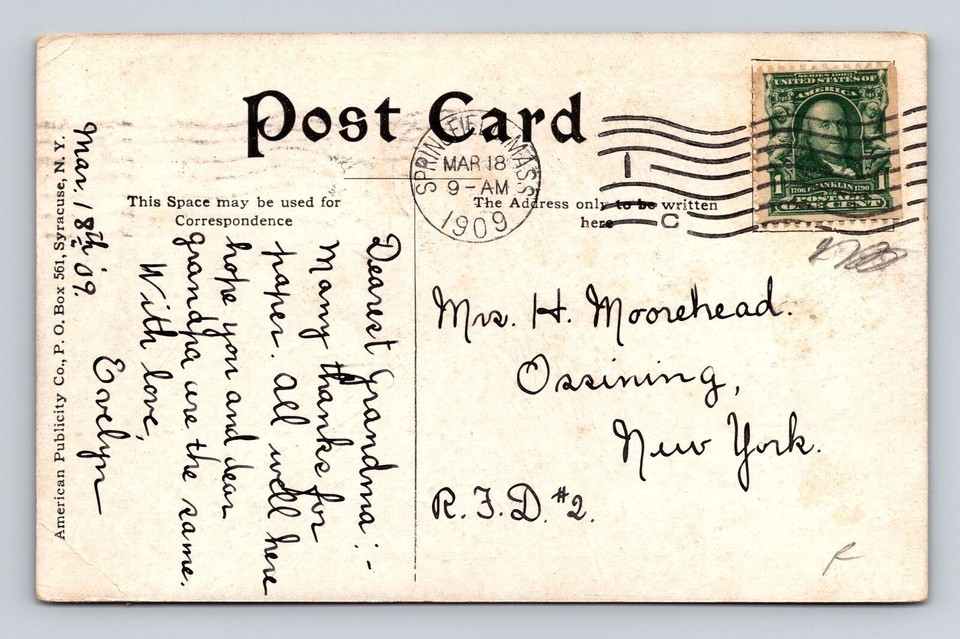 Post Card
SPRINGFIELD, MASS.
MAR 18
9-AM
1909
1
C
SERIES 1902
UNITED STATES OF
AMERICA
1706 FRANKLIN 1790
1 1
POSTAGE
ONE CENT
This Space may be used for
Correspondence
The Address only to be written
here
Mar. 18th '09.
Dearest Grandma:-
Many thanks for
paper. All well here
hope you and dear
grandpa are the same.
With love,
Evelyn
Mrs. H. Moorehead.
Ossining,
New York.
R.F.D. #2.
American Publicity Co., P. O. Box 561, Syracuse, N. Y.